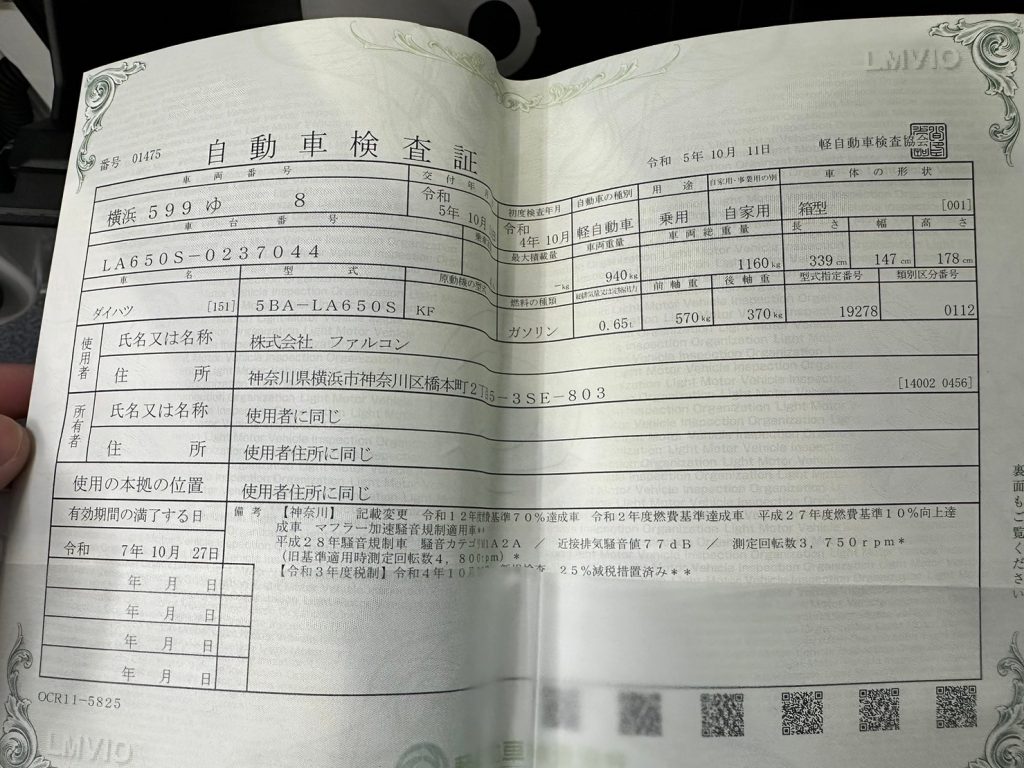 LMVIO
番号 01475
自動車検査証
令和 5年10月11日
軽自動車検査協
車両番号
交付年
初度検査年月
自動車の種別
用途
自家用・事業用の別
車体の形状
横浜 599 ゆ 8
令和 5年10月
令和 4年10月
軽自動車
乗用
自家用
箱型 [001]
車台番号
最大積載量
車両重量
車両総重量
長さ
幅
高さ
LA650S-0237044
-kg
940kg
1160kg
339cm
147cm
178cm
車名
型式
原動機の型式
燃料の種類
前軸重
後軸重
型式指定番号
類別区分番号
ダイハツ [151]
5BA-LA650S
KF
ガソリン
0.65ℓ
570kg
370kg
19278
0112
使用者
氏名又は名称 株式会社 ファルコン
住所 神奈川県横浜市神奈川区橋本町2丁 5-3SE-803 [14002 0456]
所有者
氏名又は名称 使用者に同じ
住所 使用者住所に同じ
使用の本拠の位置 使用者住所に同じ
有効期間の満了する日
令和 7年10月27日
年 月 日
年 月 日
年 月 日
年 月 日
備考
【神奈川】 記載変更 令和12年度燃費基準70%達成車 令和2年度燃費基準達成車 平成27年度燃費基準10%向上達
成車 マフラー加速騒音規制適用車**
平成28年騒音規制車 騒音カテゴリM1A2A / 近接排気騒音値77dB / 測定回転数3,750rpm*
(旧基準適用時測定回転数4,800rpm)*
【令和3年度税制】令和4年10 検査 25%減税措置済み**
裏面もご覧ください
OCR11-5825
LMVIO